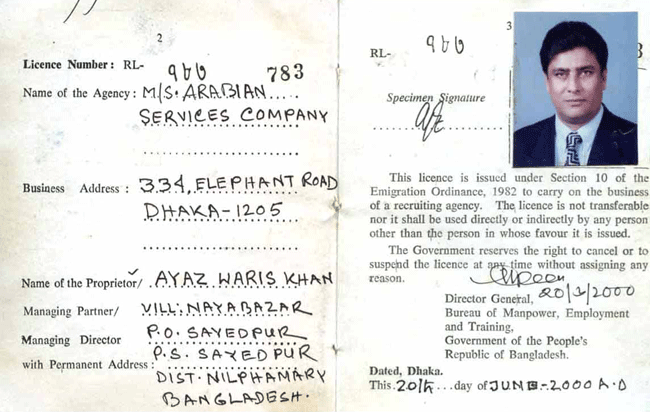 2
Licence Number : RL- ৭৮৩ 783
Name of the Agency : M/S. ARABIAN
SERVICES COMPANY
Business Address : 334, ELEPHANT ROAD
DHAKA-1205
Name of the Proprietor/ AYAZ WARIS KHAN
Managing Partner/ VILL: NAYABAZAR
Managing Director P.O. SAYEDPUR
with Permanent Address : P.S. SAYEDPUR
DIST. NILPHAMARY
BANGLADESH.
3
RL-
Specimen Signature
This licence is issued under Section 10 of the
Emigration Ordinance, 1982 to carry on the business
of a recruiting agency. The licence is not transferable
nor it shall be used directly or indirectly by any person
other than the person in whose favour it is issued.
The Government reserves the right to cancel or to
suspend the licence at any time without assigning any
reason.
20/1/2000
Director General,
Bureau of Manpower, Employment
and Training,
Government of the People's
Republic of Bangladesh.
Dated, Dhaka.
This 20th day of JUNE-2000 A.D